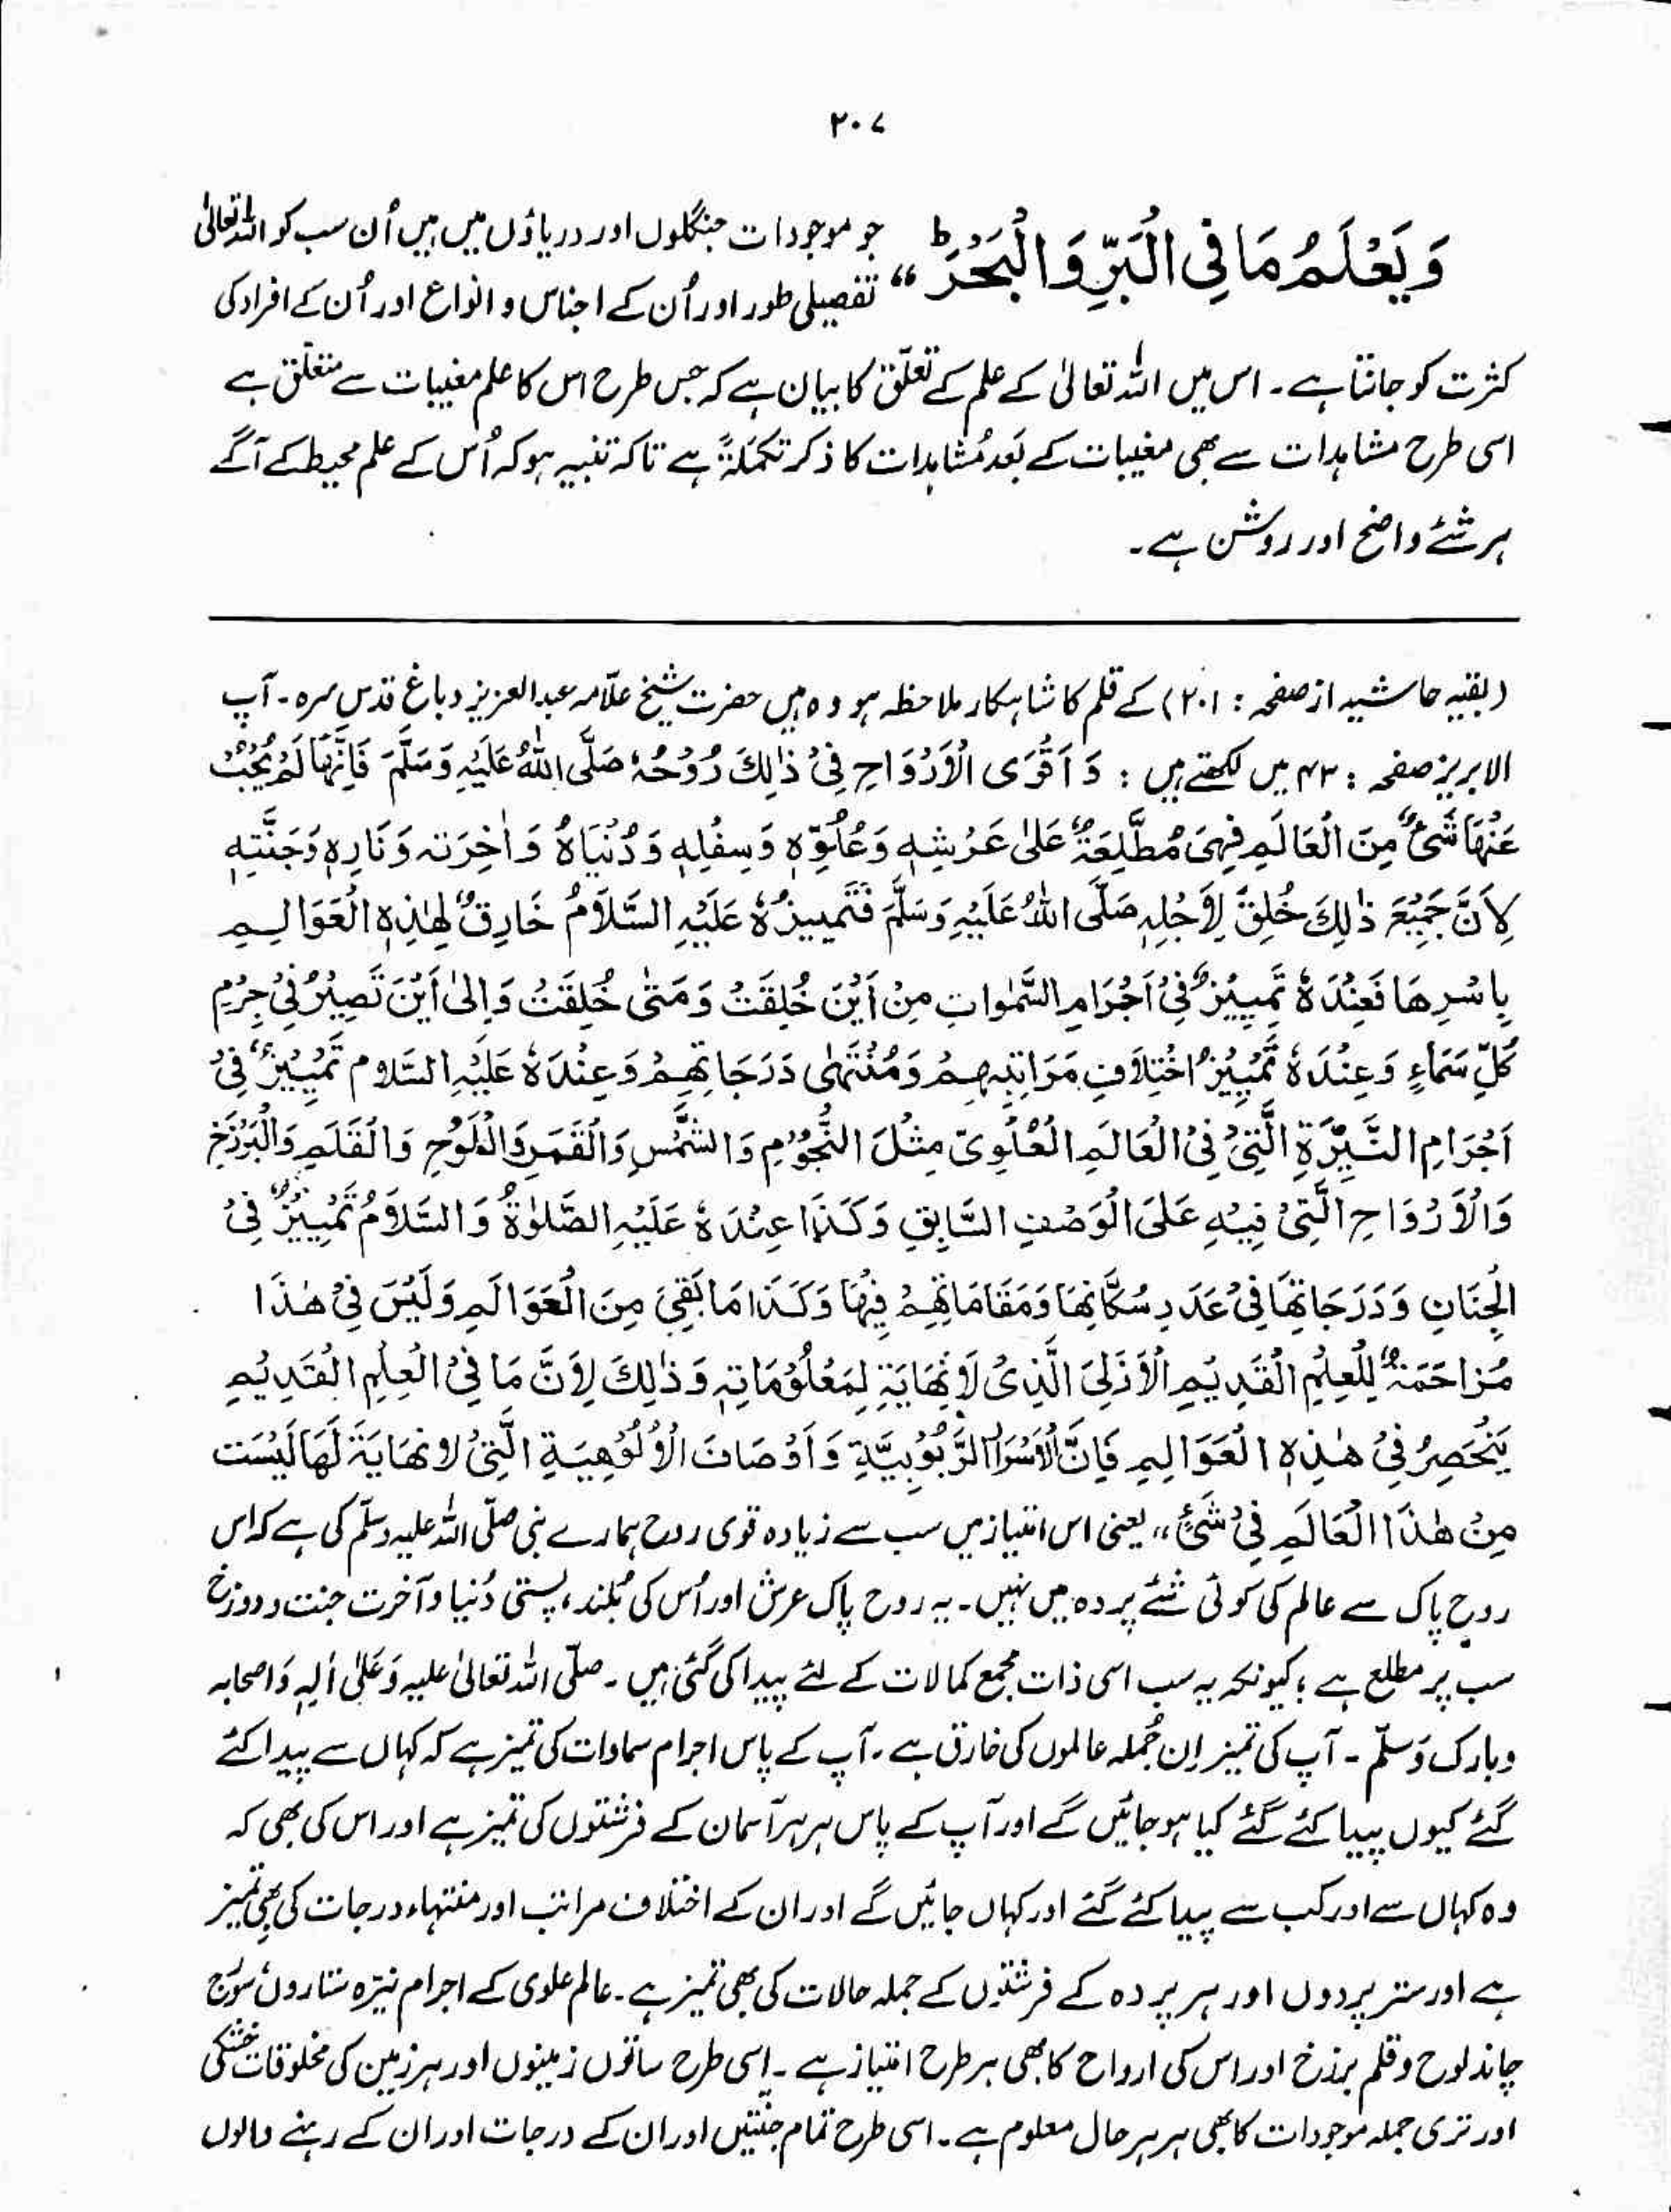 ۲۰۷
وَيَعْلَمُ مَا فِي الْبَرِّ وَالْبَحْرِ ط“ جو موجودات جنگلوں اور دریاؤں میں ہیں اُن سب کو اللہ تعالیٰ
تفصیلی طور اور اُن کے اجناس و انواع اور اُن کے افراد کی
کثرت کو جانتا ہے۔ اس میں اللہ تعالیٰ کے علم کے تعلّق کا بیان ہے کہ جس طرح اس کا علم مغیبات سے متعلّق ہے
اسی طرح مشاہدات سے بھی مغیبات کے بَعد مُشاہدات کا ذکر تکمَلۃً ہے تاکہ تنبیہ ہو کہ اُس کے علم محیط کے آگے
ہر شئے واضح اور روشن ہے۔
(بقیہ حاشیہ از صفحہ : ۲۰۱) کے قلم کا شاہکار ملاحظہ ہو وہ ہیں حضرت شیخ علّامہ عبدالعزیز دباغ قدس سرہ۔ آپ
الابریز صفحہ : ۴۳ میں لکھتے ہیں : وَ اَقْوَی الْاَرْوَاحِ فِیْ ذٰلِكَ رُوْحُہٗ صَلَّی اللّٰہُ عَلَیْہِ وَسَلَّمَ فَاِنَّہَا لَمْ یُحْجَبْ
عَنْہَا شَیْءٌ مِنَ الْعَالَمِ فَہِیَ مُطَّلِعَۃٌ عَلیٰ عَرْشِہٖ وَعُلُوِّہٖ وَسِفْلِہٖ وَدُنْیَاہُ وَ اٰخِرَتہٖ وَنَارِہٖ وَجَنَّتِہٖ
لِاَنَّ جَمِیْعَ ذٰلِكَ خُلِقَ لِاَجْلِہٖ صَلَّی اللّٰہُ عَلَیْہِ وَسَلَّمَ فَتَمِییزُہٗ عَلَیْہِ السَّلَامُ خَارِقٌ لِہٰذِہِ الْعَوَالِمِ
بِاَسْرِھَا فَعِنْدَہٗ تَمْیِیْزٌ فِیْ اَجْرَامِ السَّمٰوَاتِ مِنْ اَیْنَ خُلِقَتْ وَمَتٰی خُلِقَتْ وَاِلیٰ اَیْنَ تَصِیْرُ فِیْ جِرْمِ
كُلِّ سَمَاءٍ وَعِنْدَہٗ تَمْیِیْزُ اخْتِلَافِ مَرَاتِبِہِمْ وَمُنْتَہٰی دَرَجَاتِہِمْ وَعِنْدَہٗ عَلَیْہِ السَّلام تَمْیِیْزٌ فِیْ
اَجْرَامِ النَّیِّرَۃِ الَّتِیْ فِیْ الْعَالَمِ الْعُلْوِیّ مِثْلَ النُّجُوْمِ وَالشَّمْسِ وَالْقَمَرِ وَالْلَوْحِ وَالْقَلَمِ وَالْبَرْزَخِ
وَالْاَرْوَاحِ الَّتِیْ فِیْہِ عَلَی الْوَصْفِ السَّابِقِ وَكَذَا عِنْدَہٗ عَلَیْہِ الصَّلٰوۃُ وَالسَّلَامُ تَمْیِیْزٌ فِیْ
الْجِنَانِ وَدَرَجَاتِہَا فِیْ عَدَدِ سُكَّانِہَا وَمَقَامَاتِہِمْ فِیْہَا وَكَذَا مَا بَقِیَ مِنَ الْعَوَالَمِ وَلَیْسَ فِیْ ھٰذَا
مُزَاحَمَۃٌ لِلْعِلْمِ الْقَدِیْمِ الْاَزَلِیّ الَّذِیْ لَا نِہَایَۃَ لِمَعْلُوْمَاتِہٖ وَذٰلِكَ لِاَنَّ مَا فِیْ الْعِلْمِ الْقَدِیْمِ
یَنْحَصِرُ فِیْ ھٰذِہِ الْعَوَالِمِ فَاِنَّ الْاَسْرَارَ الرَّبُوْبِیَّۃِ وَاَوْصَافَ الْاُلُوْھِیَۃِ الَّتِیْ لا نھَایَۃَ لَھَا لَیْسَت
مِنْ ھٰذَا الْعَالَمِ فِیْ شَیْئٍ“ یعنی اس امتیاز میں سب سے زیادہ قوی روح ہمارے نبی صلّی اللہ علیہ وسلّم کی ہے کہ اس
روح پاک سے عالم کی کوئی شئے پردہ میں نہیں۔ یہ روح پاک عرش اور اُس کی بُلند، پستی دُنیا و آخرت جنت و دوزخ
سب پر مطلع ہے؛ کیونکہ یہ سب اسی ذات مجمع کمالات کے لئے پیدا کی گئی ہیں۔ صلّی اللہ تعالیٰ علیہ وَعَلیٰ اٰلِہٖ وَاصحابہ
وبارک وَسلّم۔ آپ کی تمیز اِن جُملہ عالموں کی خارق ہے۔ آپ کے پاس اجرام سماوات کی تمیز ہے کہ کہاں سے پیدا کئے
گئے کیوں پیدا کئے گئے کیا ہو جائیں گے اور آپ کے پاس ہر ہر آسمان کے فرشتوں کی تمیز ہے اور اس کی بھی کہ
وہ کہاں سے اور کب سے پیدا کئے گئے اور کہاں جائیں گے اور ان کے اختلاف مراتب اور منتہاء درجات کی بھی تمیز
ہے اور ستر پردوں اور ہر پردہ کے فرشتوں کے جملہ حالات کی بھی تمیز ہے۔ عالم علوی کے اجرام نیّرہ ستاروں سورج
چاند لوح و قلم برزخ اور اس کی ارواح کا بھی ہر طرح امتیاز ہے۔ اِسی طرح ساتوں زمینوں اور ہر زمین کی مخلوقات خشکی
اور تری جملہ موجودات کا بھی ہر ہر حال معلوم ہے۔ اسی طرح تمام جنتیں اور ان کے درجات اور ان کے رہنے والوں